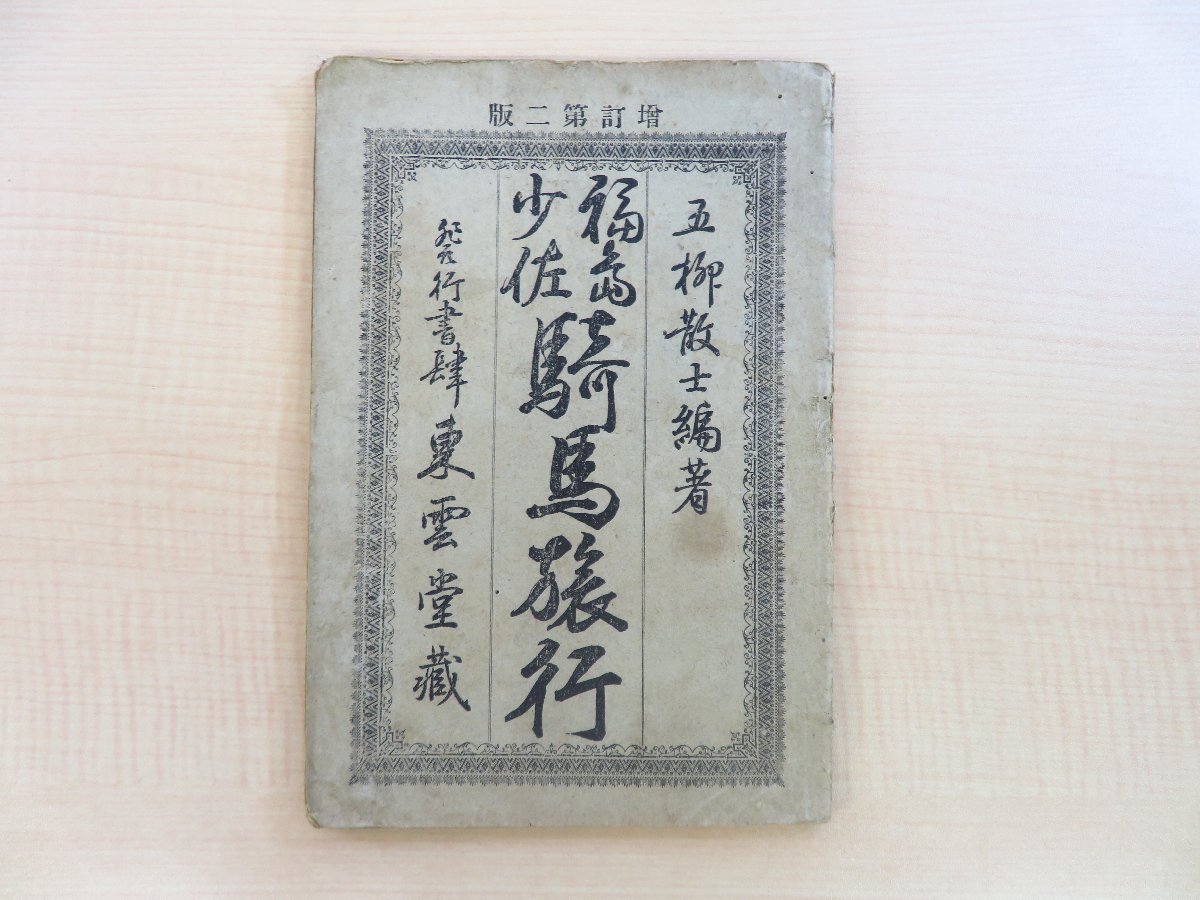 増訂第二版
五柳散士編著
福島少佐騎馬旅行
発行書肆東雲堂蔵